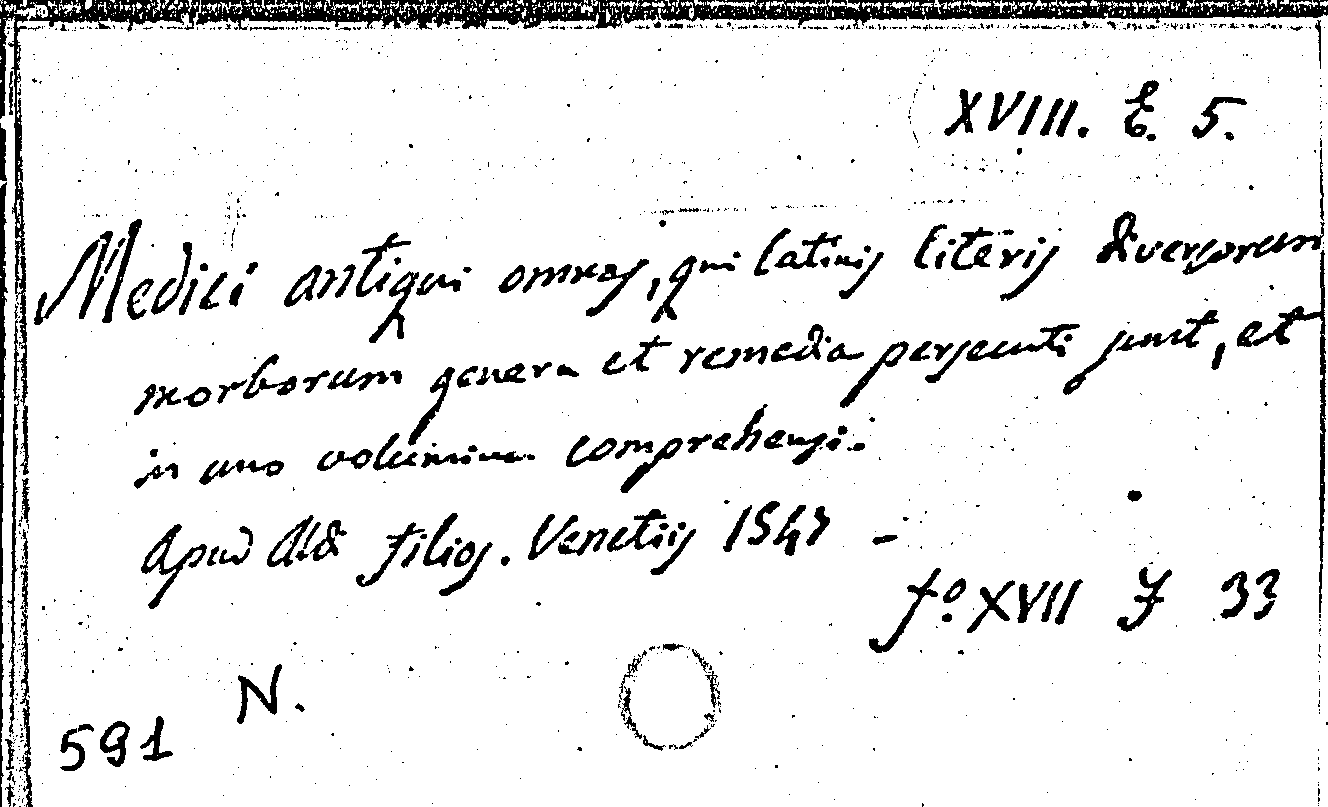 XVIII. E. 5.
Medici antiqui omnes, qui latinis literis diversorum
morborum genera et remedia persecuti sunt, et
in uno volumine comprehensi.
Apud Aldi filios. Venetiis 1547 -
fo. XVII F 33
N.
591